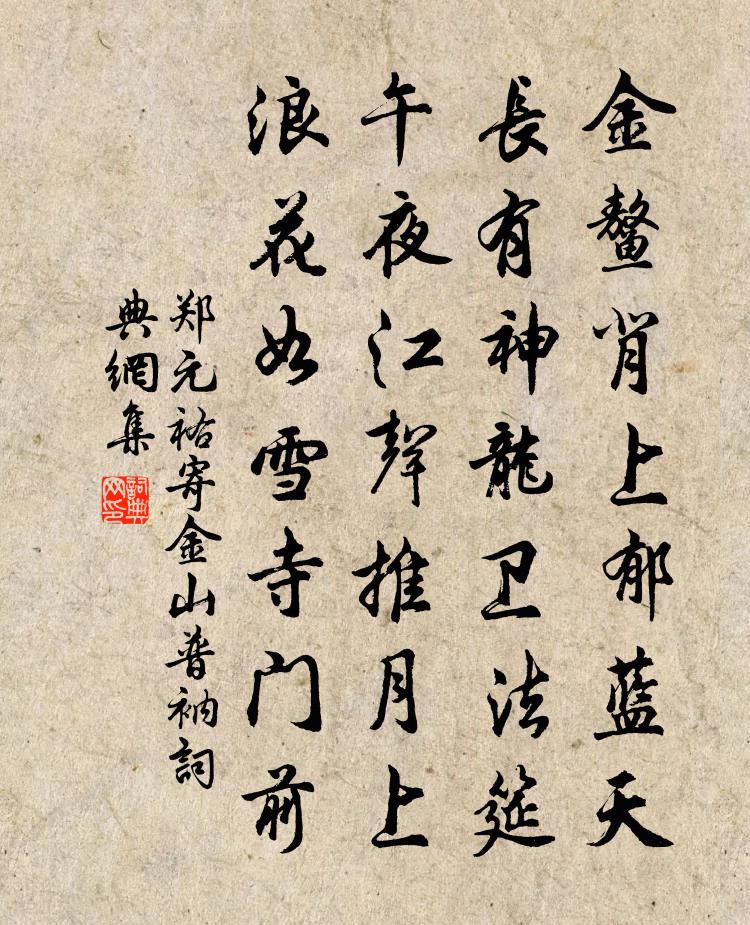 金鳌背上郁藍天
長有神龍卫法筵
午夜江聲推月上
浪花如雪寺门前
郑元祐寄金山普衲詞
典網集
詞典
网印